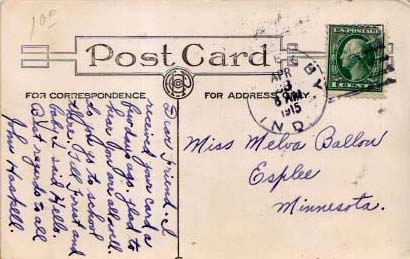 10.00
Post Card
FOR CORRESPONDENCE
FOR ADDRESS ONLY
U.S. POSTAGE
1 CENT
APR
3
8 AM
1915
IND
Dear Friend:- I
received your card a
few days ago. glad to
hear you are all well.
to school
Tell Forrest and
said Hello.
Best regards to all
John Haskell.
Miss Melva Ballou
Esplee
Minnesota.